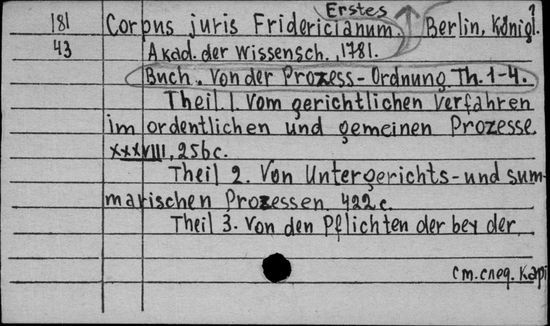 Erstes
181 Corpus juris Fridericianum. Berlin, Königl.
43 Akad. der Wissensch., 1781.
Buch. Von der Prozess-Ordnung. Th. 1-4.
Theil 1. Vom gerichtlichen Verfahren
im ordentlichen und gemeinen Prozesse.
XXXVIII, 256 c.
Theil 2. Von Untergerichts- und sum-
marischen Prozessen. 422 c.
Theil 3. Von den Pflichten der bey der
См. след. карт